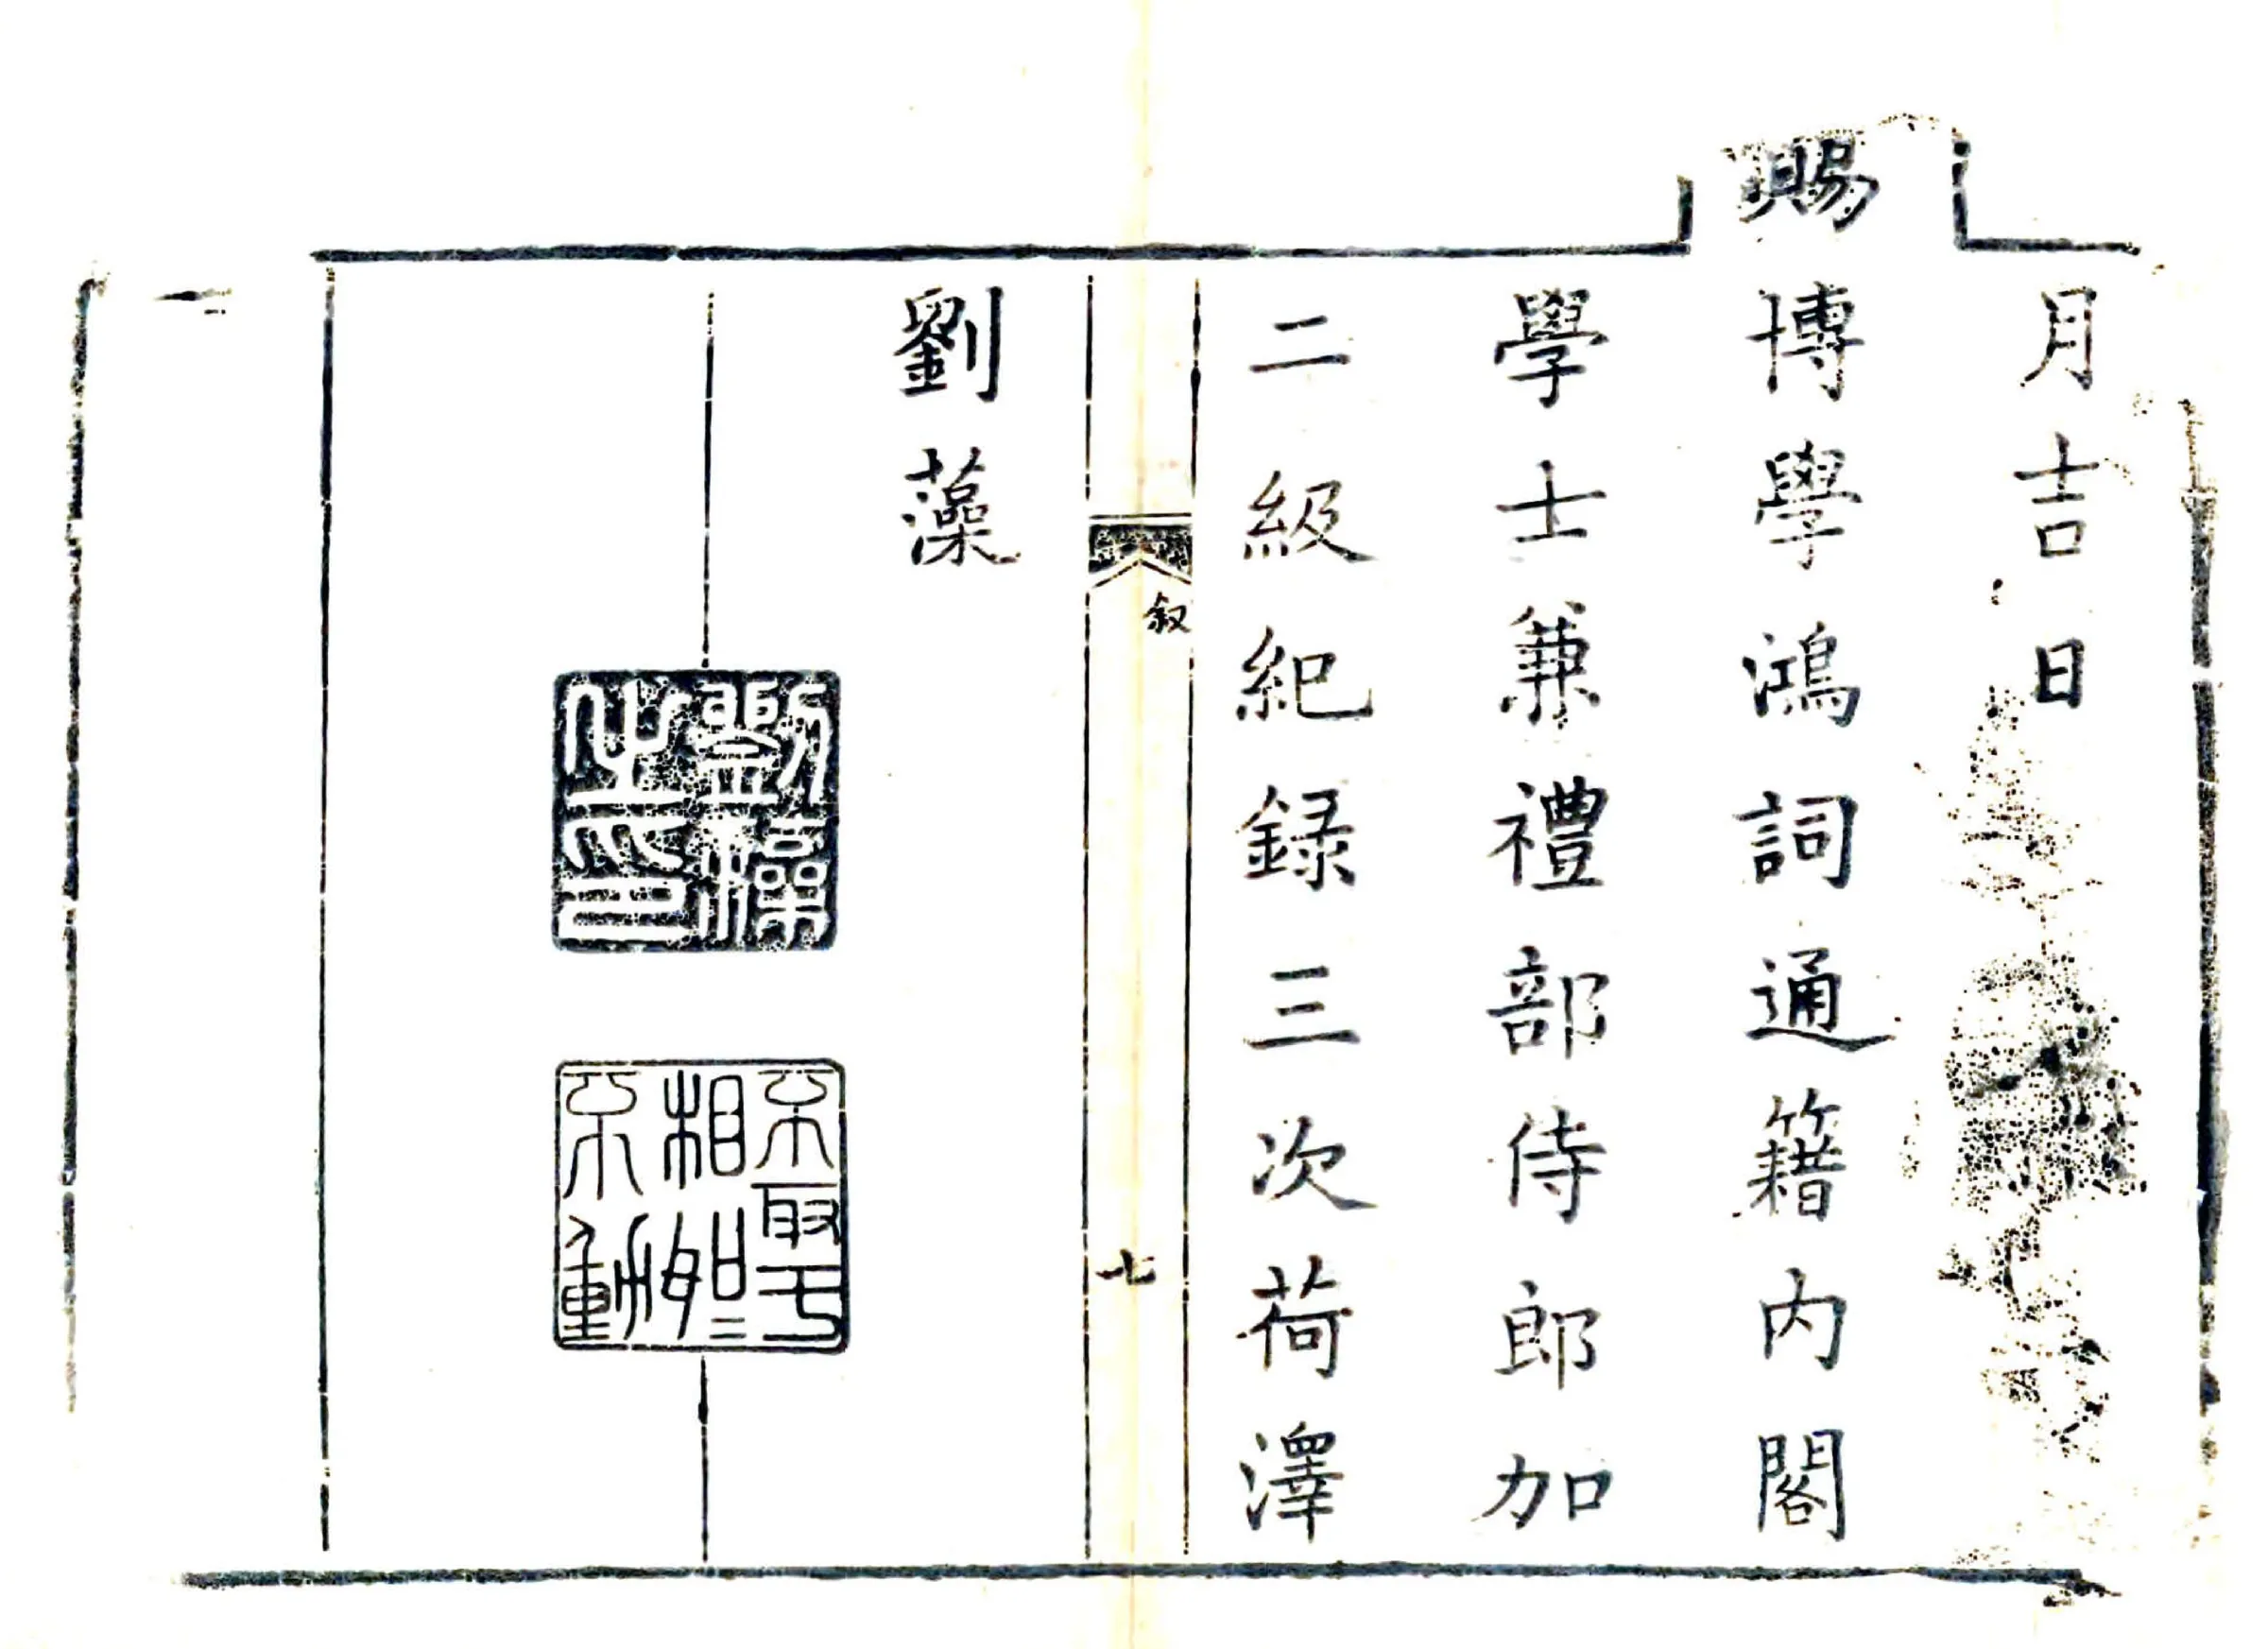 月吉日
賜博學鴻詞通籍内閣
學士兼禮部侍郎加
二級紀録三次荷澤
叙
七
劉藻
劉藻之印